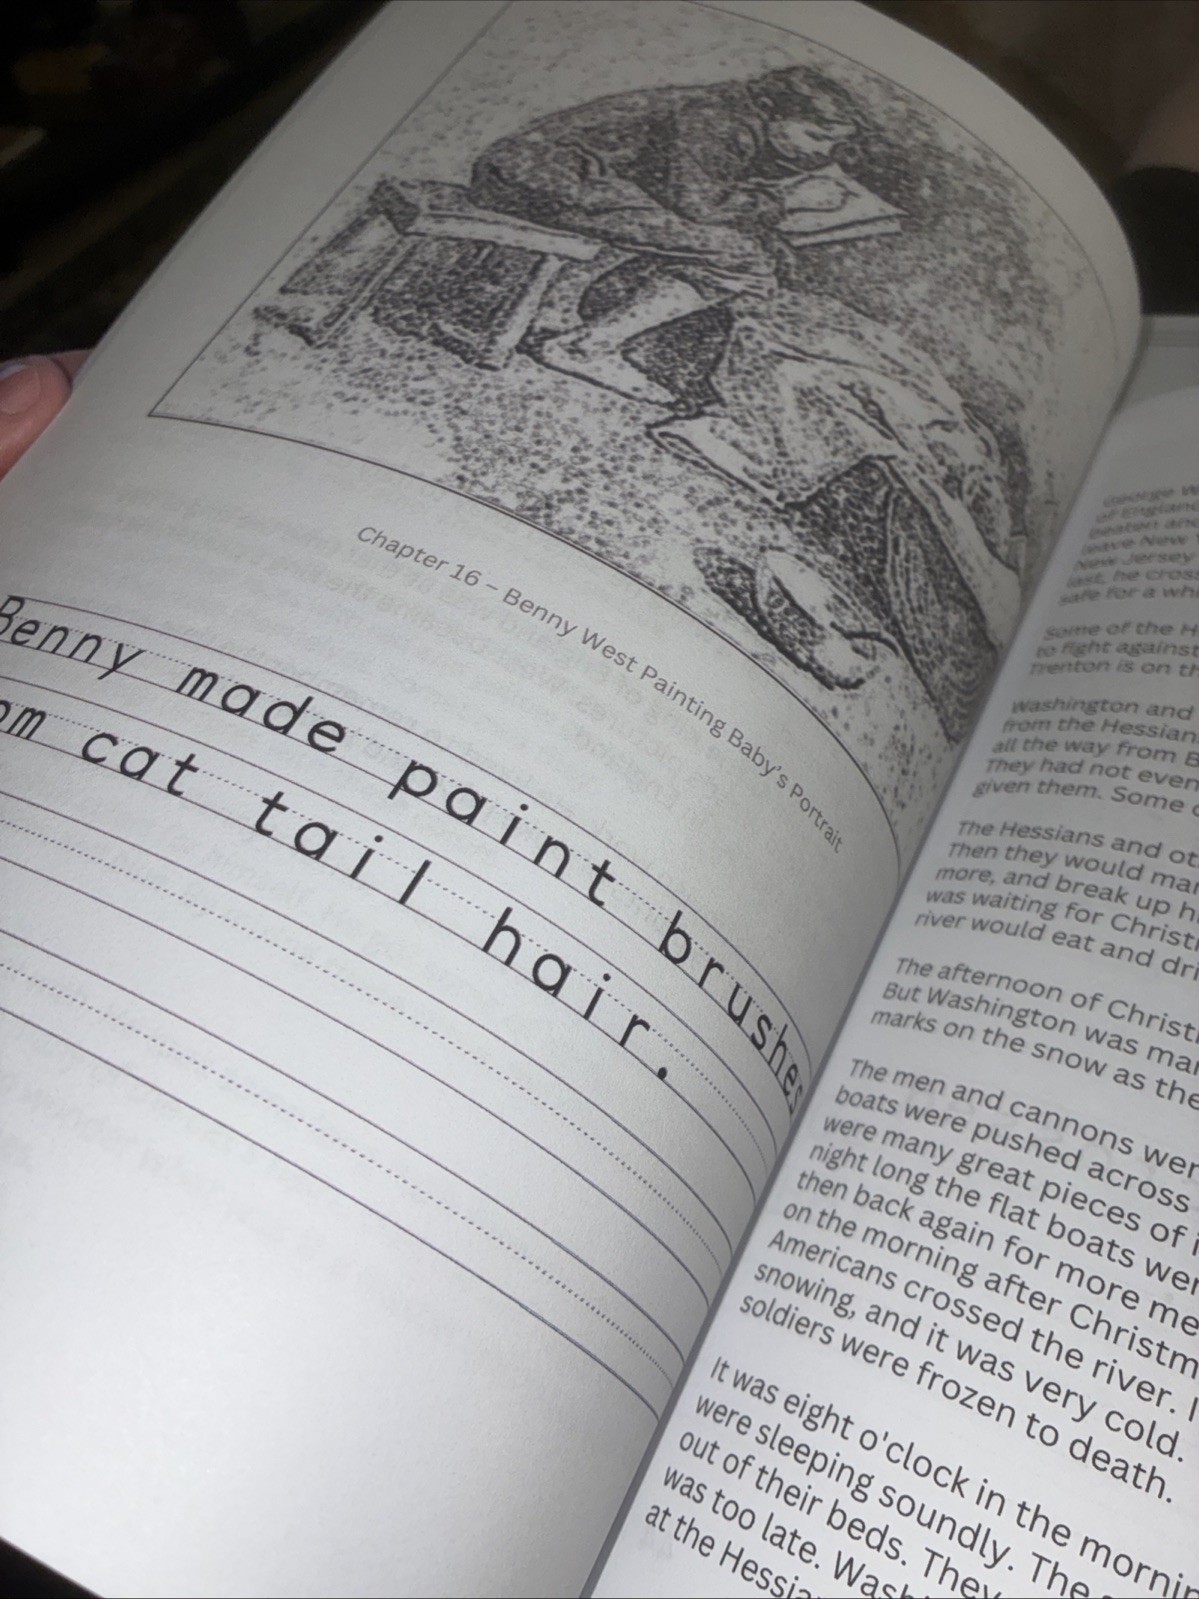 Chapter 16 – Benny West Painting Baby's Portrait
Benny made paint brushes
cat tail hair.
George
of England
beaten and
leave New
New Jersey
last, he
safe for a
Some of the
to fight against
Trenton is on
Washington and
from the Hessian
all the way from
They had not even
given them. Some
The Hessians and
Then they would
more, and break up
was waiting for
river would eat and
The afternoon of
But Washington was
marks on the snow as
The men and cannons
boats were pushed across
were many great pieces of
night long the flat boats
then back again for more
on the morning after
Americans crossed the river.
snowing, and it was very cold.
soldiers were frozen to death.
It was eight o'clock in the
were sleeping soundly. The
out of their beds. They
was too late.
at the